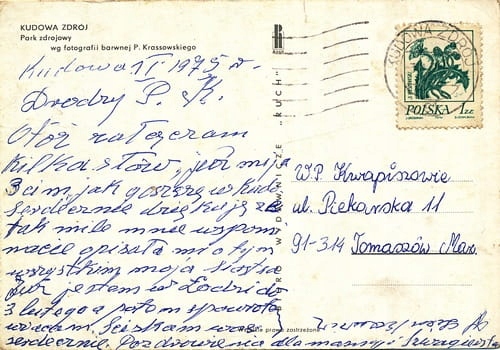 KUDOWA ZDRÓJ
Park zdrojowy
wg fotografii barwnej P. Krassowskiego
Kudowa II 1975 r.
Drodzy P. K.
Otóż załączam
kilka słów, już mija
jak goszczę w Kudo
serdecznie dziękuję że
tak mile mnie wspomi
nacie opisała mi o tym
wszystkim moja siostra
Już jestem w Łodzi do
3 lutego a potem spowrotem
wracam. Ściskam was
serdecznie. Pozdrowienia dla mamy i
WYDAWNICZE "RUCH"
prawa zastrzeżone
KUDOWA ZDRÓJ
POLSKA 1 ZŁ
W.P. Kwapiszowie
ul. Piekarska 11
91-314 Tomaszów Maz.